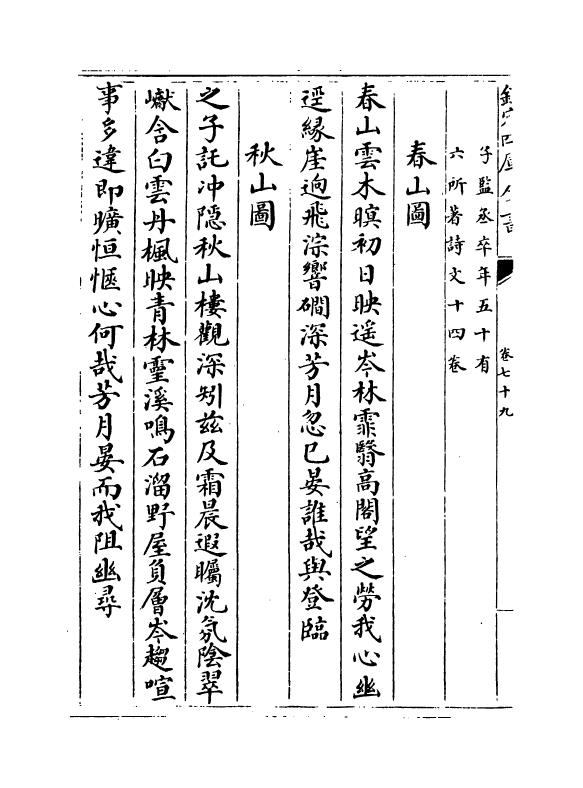 欽定四庫全書
卷七十九
子監丞卒年五十有
六所著詩文十四卷
春山圖
春山雲木暝初日映遥岑林霏翳高閣望之勞我心幽
逕緣崖逈飛淙響磵深芳月忽已晏誰哉與登臨
秋山圖
之子託冲隱秋山樓觀深矧兹及霜晨遐矚沈氛陰翠
巘含白雲丹楓映青林靈溪鳴石溜野屋負層岑趨喧
事多違即曠恒愜心何哉芳月晏而我阻幽尋